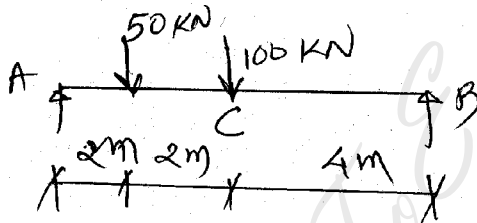 50 KN
100 KN
A
B
C
2m 2m 4m